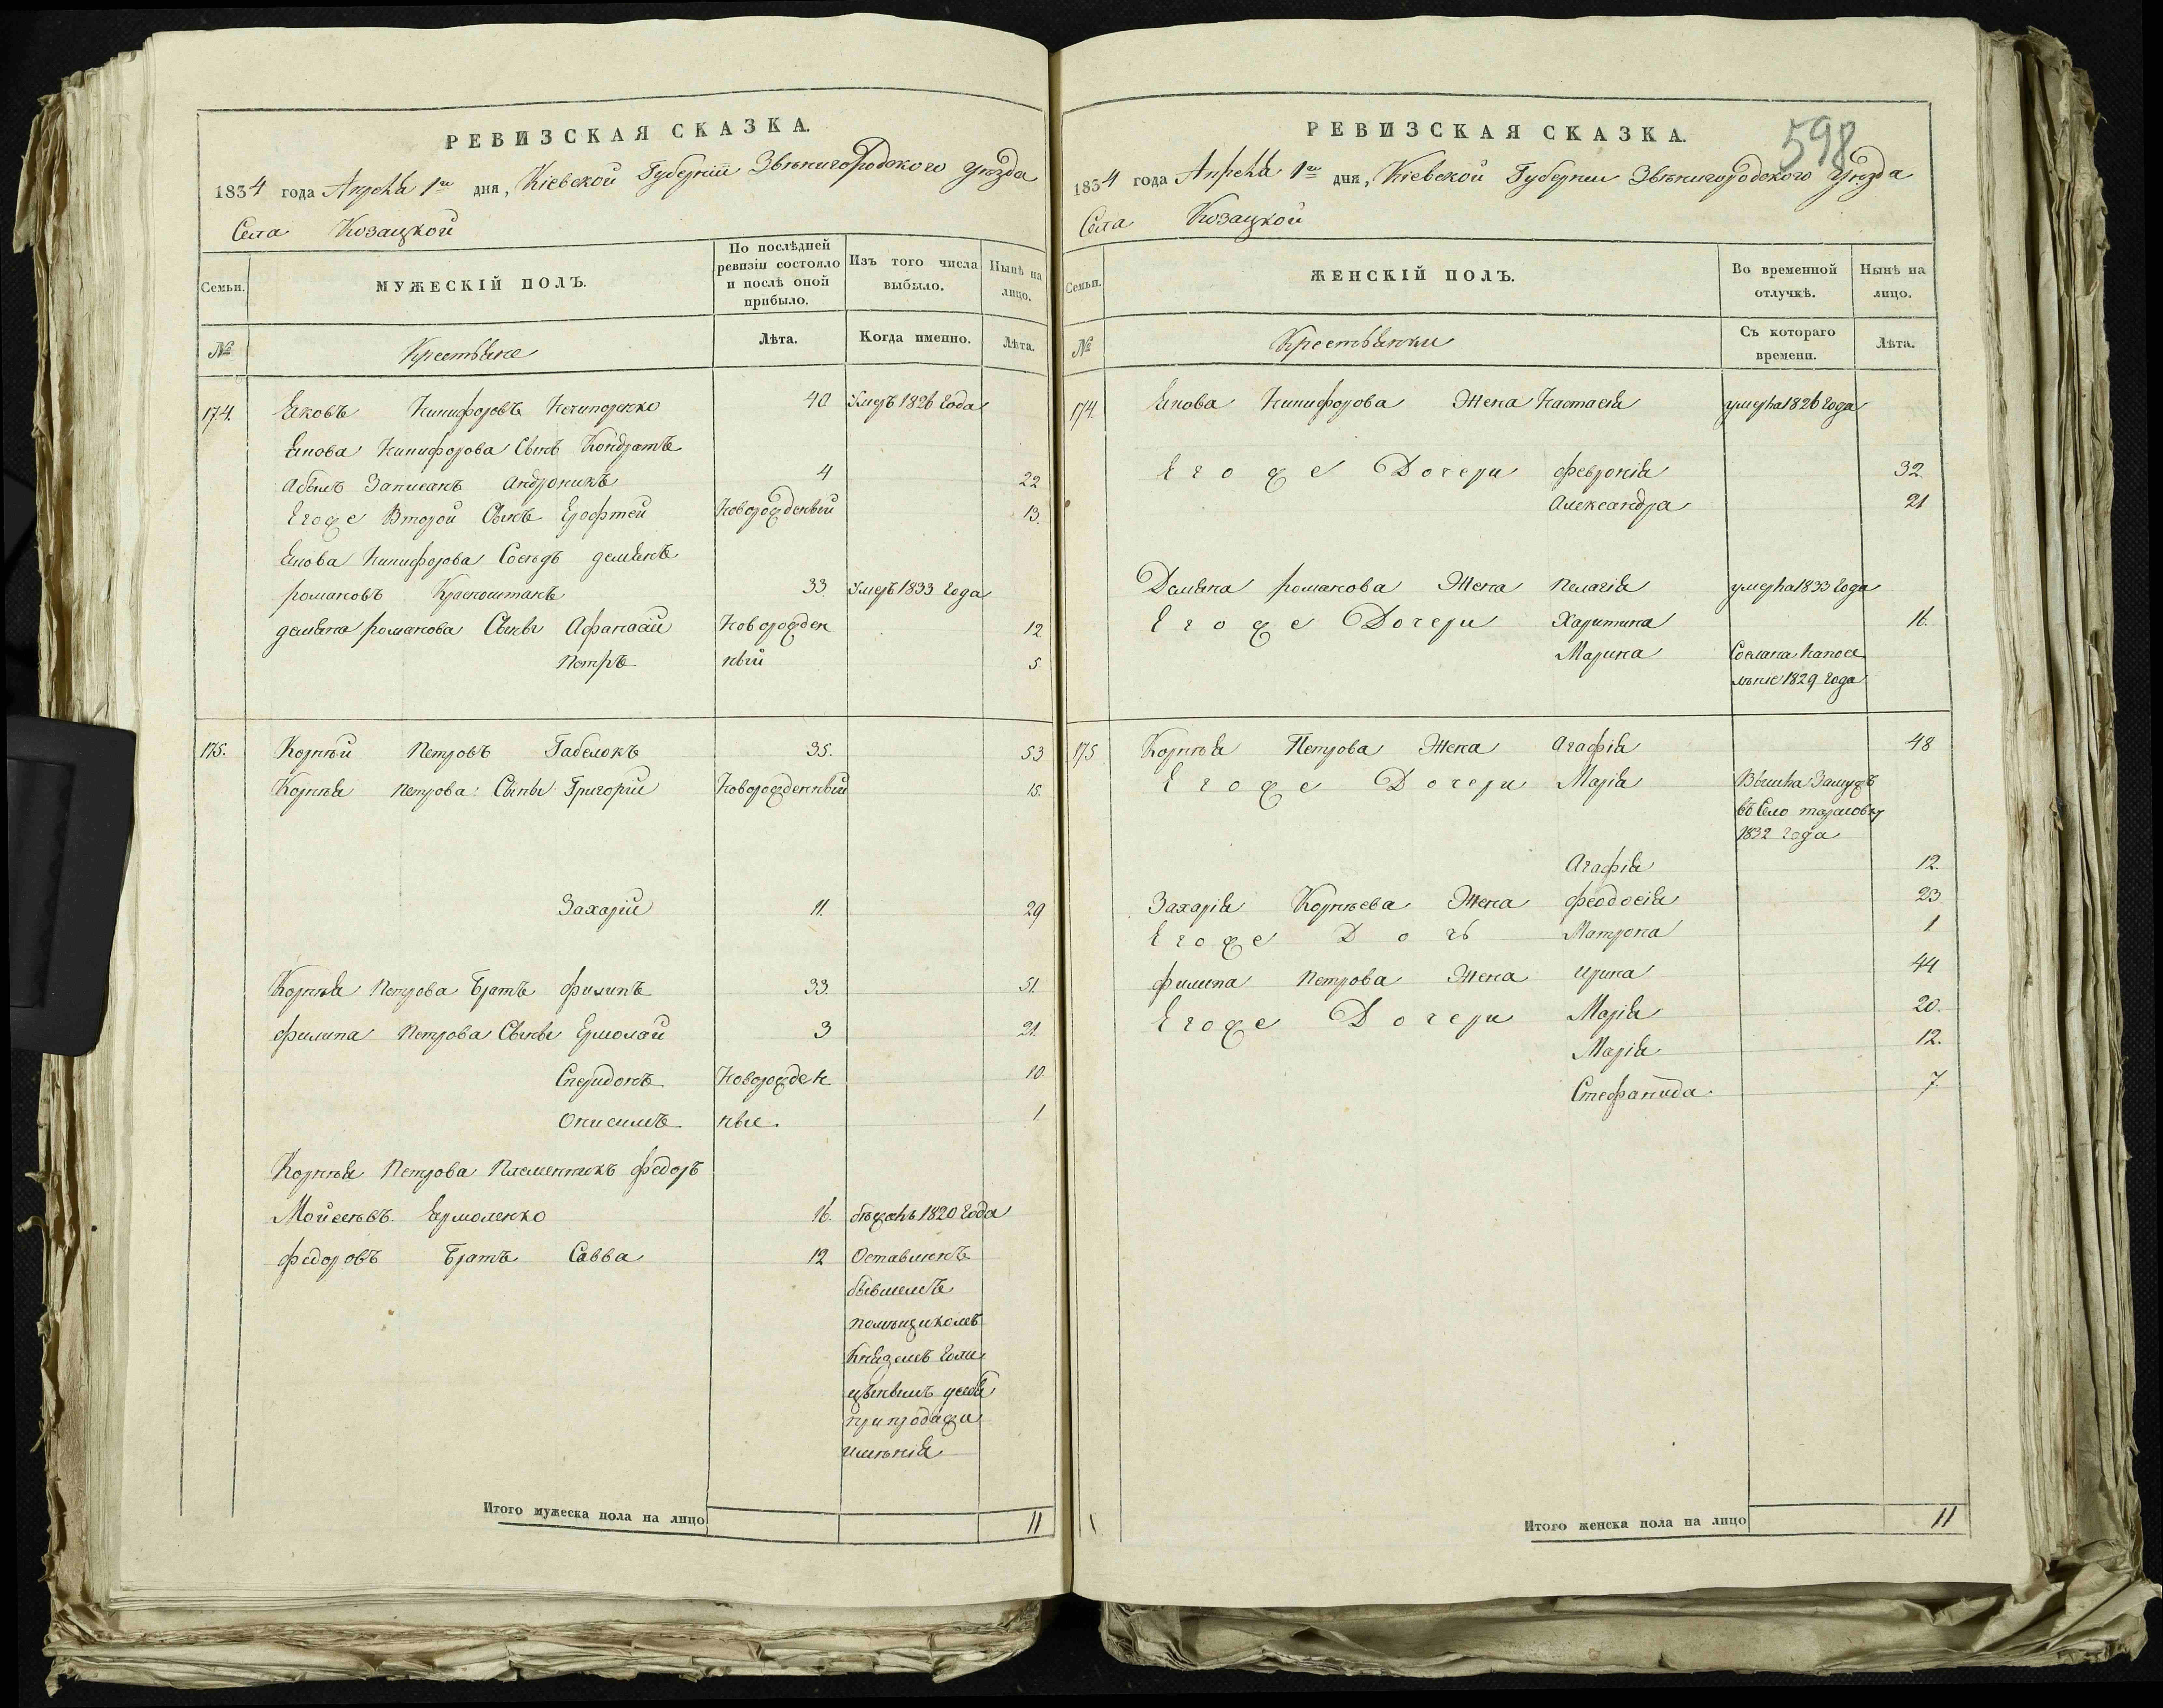 РЕВИЗСКАЯ СКАЗКА.
1834 года Апреля 1го дня, Кіевской Губерніи Звѣнигородского Уѣзда
Села Козацкой
Семьи.
МУЖЕСКІЙ ПОЛЪ.
По послѣдней ревизіи состояло и послѣ оной прибыло.
Изъ того числа выбыло.
Нынѣ на лицо.
№
Крестьяне
Лѣта.
Когда именно.
Лѣта.
174. Яковъ Никифоровъ Нечипоренко 40 Умеръ 1826 года
Якова Никифорова Сынъ Кондратъ
Абылъ Записанъ Андроникъ 4 22
Егоже Второй Сынъ Ерофтей Новорожденый 13.
Якова Никифорова Сосѣдъ демянъ
романовъ Красноштанъ 33. Умеръ 1833 года
демяна романова Сыны Афанасій Новорожден 12
Петръ ный 5
175. Корнѣй Петровъ Габелокъ 35. 53
Корнѣя Петрова: Сыны Григорій Новорожденный 15.
Захарій 11. 29
Корнѣя Петрова Братъ филипъ 33. 51.
филипа Петрова Сыны Ермолай 3 21.
Спиридонъ Новорожден 10
Онисимъ ные. 1
Корнѣя Петрова Племенникъ федоръ
Мойсеѣвъ Ярмоленко 16. бѣжалъ 1820 года
федоровъ Братъ Савва 12 Оставленъ
бывшемъ
помѣщикомъ
Княземъ голи
цынымъ усебя
припродажи
имѣнія
Итого мужеска пола на лицо 11
РЕВИЗСКАЯ СКАЗКА.
598
1834 года Апреля 1го дня, Кіевской Губерніи Звѣнигородского Уѣзда
Села Козацкой
Семьи.
ЖЕНСКІЙ ПОЛЪ.
Во временной отлучкѣ.
Нынѣ на лицо.
№
Крестьянки
Съ котораго времени.
Лѣта.
174. Якова Никифорова Жена Настасія умерла 1826 года
Егоже Дочери февронія 32.
Александра 21
Демяна романова Жена Пелагія умерла 1833 года
Егоже Дочери Харитина 16.
Марина Сослана напосе
лѣніе 1829 года
175 Корнѣя Петрова Жена Агафія 48
Егоже Дочери Марія Вышла Замужъ
въ Село тарасовку
1832 года
Агафія 12.
Захарія Корнѣева Жена феодосія 23.
Егоже Дочь Матрона 1
филипа Петрова Жена ирина 44
Егоже Дочери Марія 20.
Марія 12.
Стефанида 7.
Итого женска пола на лицо 11